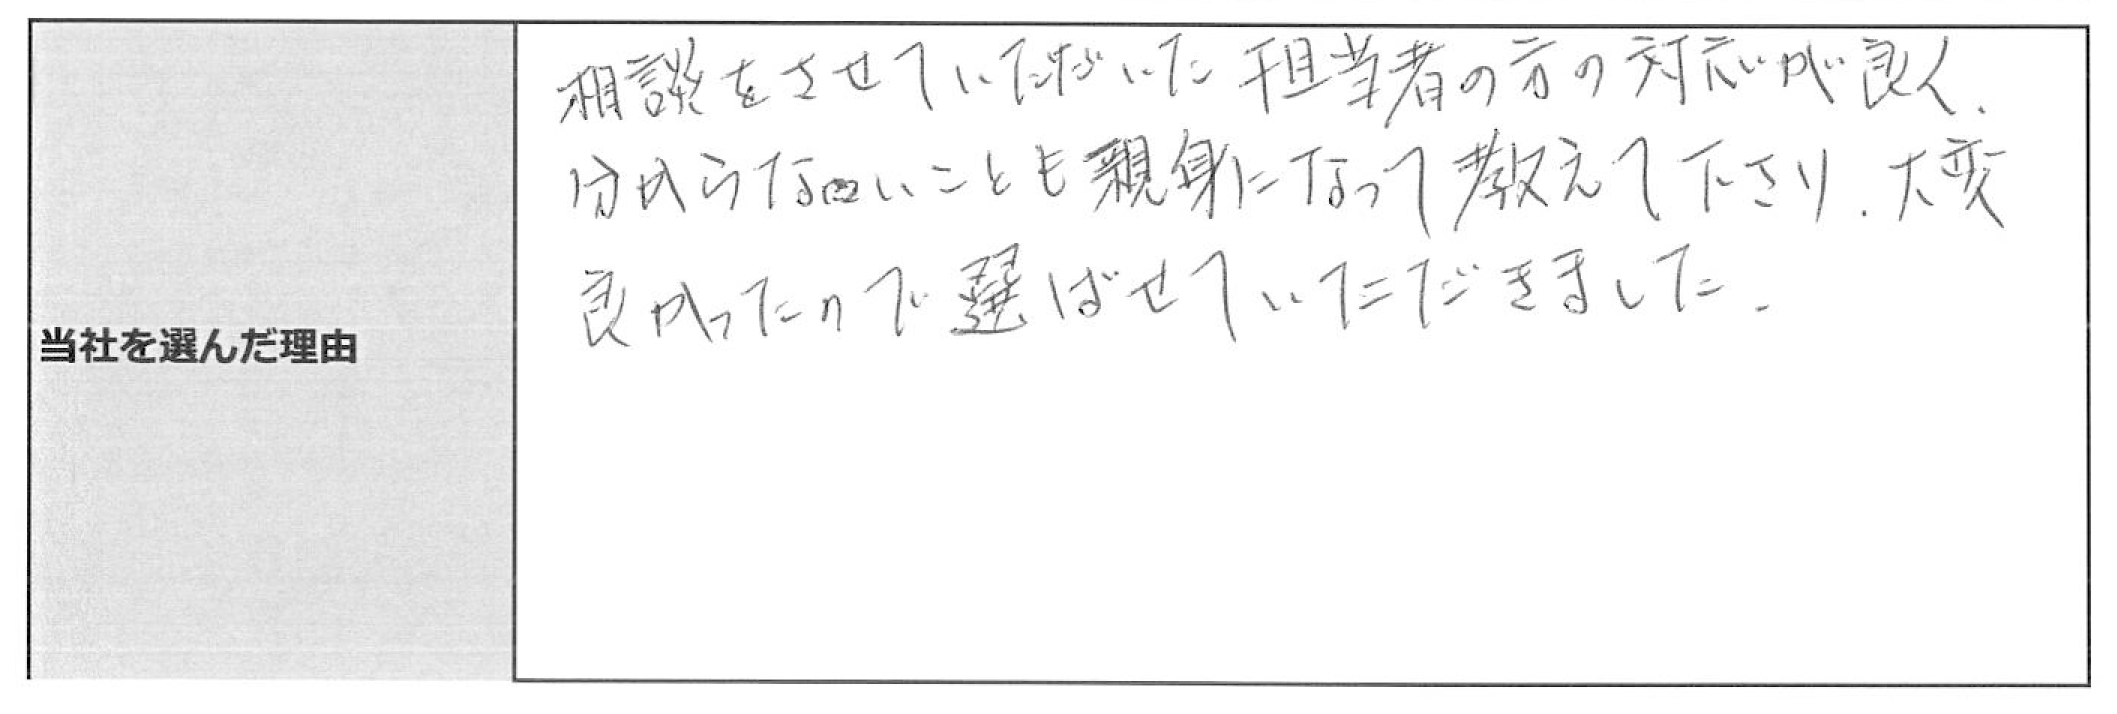 当社を選んだ理由
相談をさせていただいた担当者の方の対応が良く、
分からないことも親身になって教えて下さり、大変
良かったので選ばせていただきました。